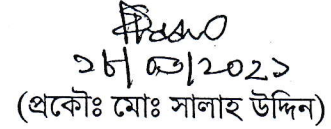 ২৮/০৩/২০২১
(প্রকৌঃ মোঃ সালাহ উদ্দিন)